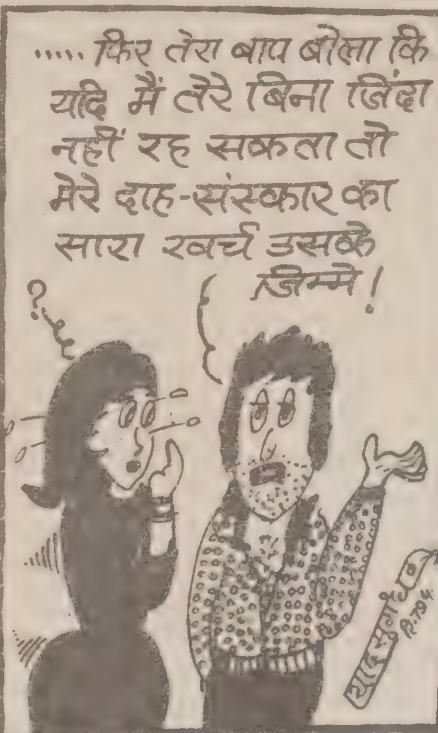 ..... फिर तेरा बाप बोला कि
यदि मैं तेरे बिना जिंदा
नहीं रह सकता तो
मेरे दाह-संस्कार का
सारा खर्च उसके
जिम्मे!
?